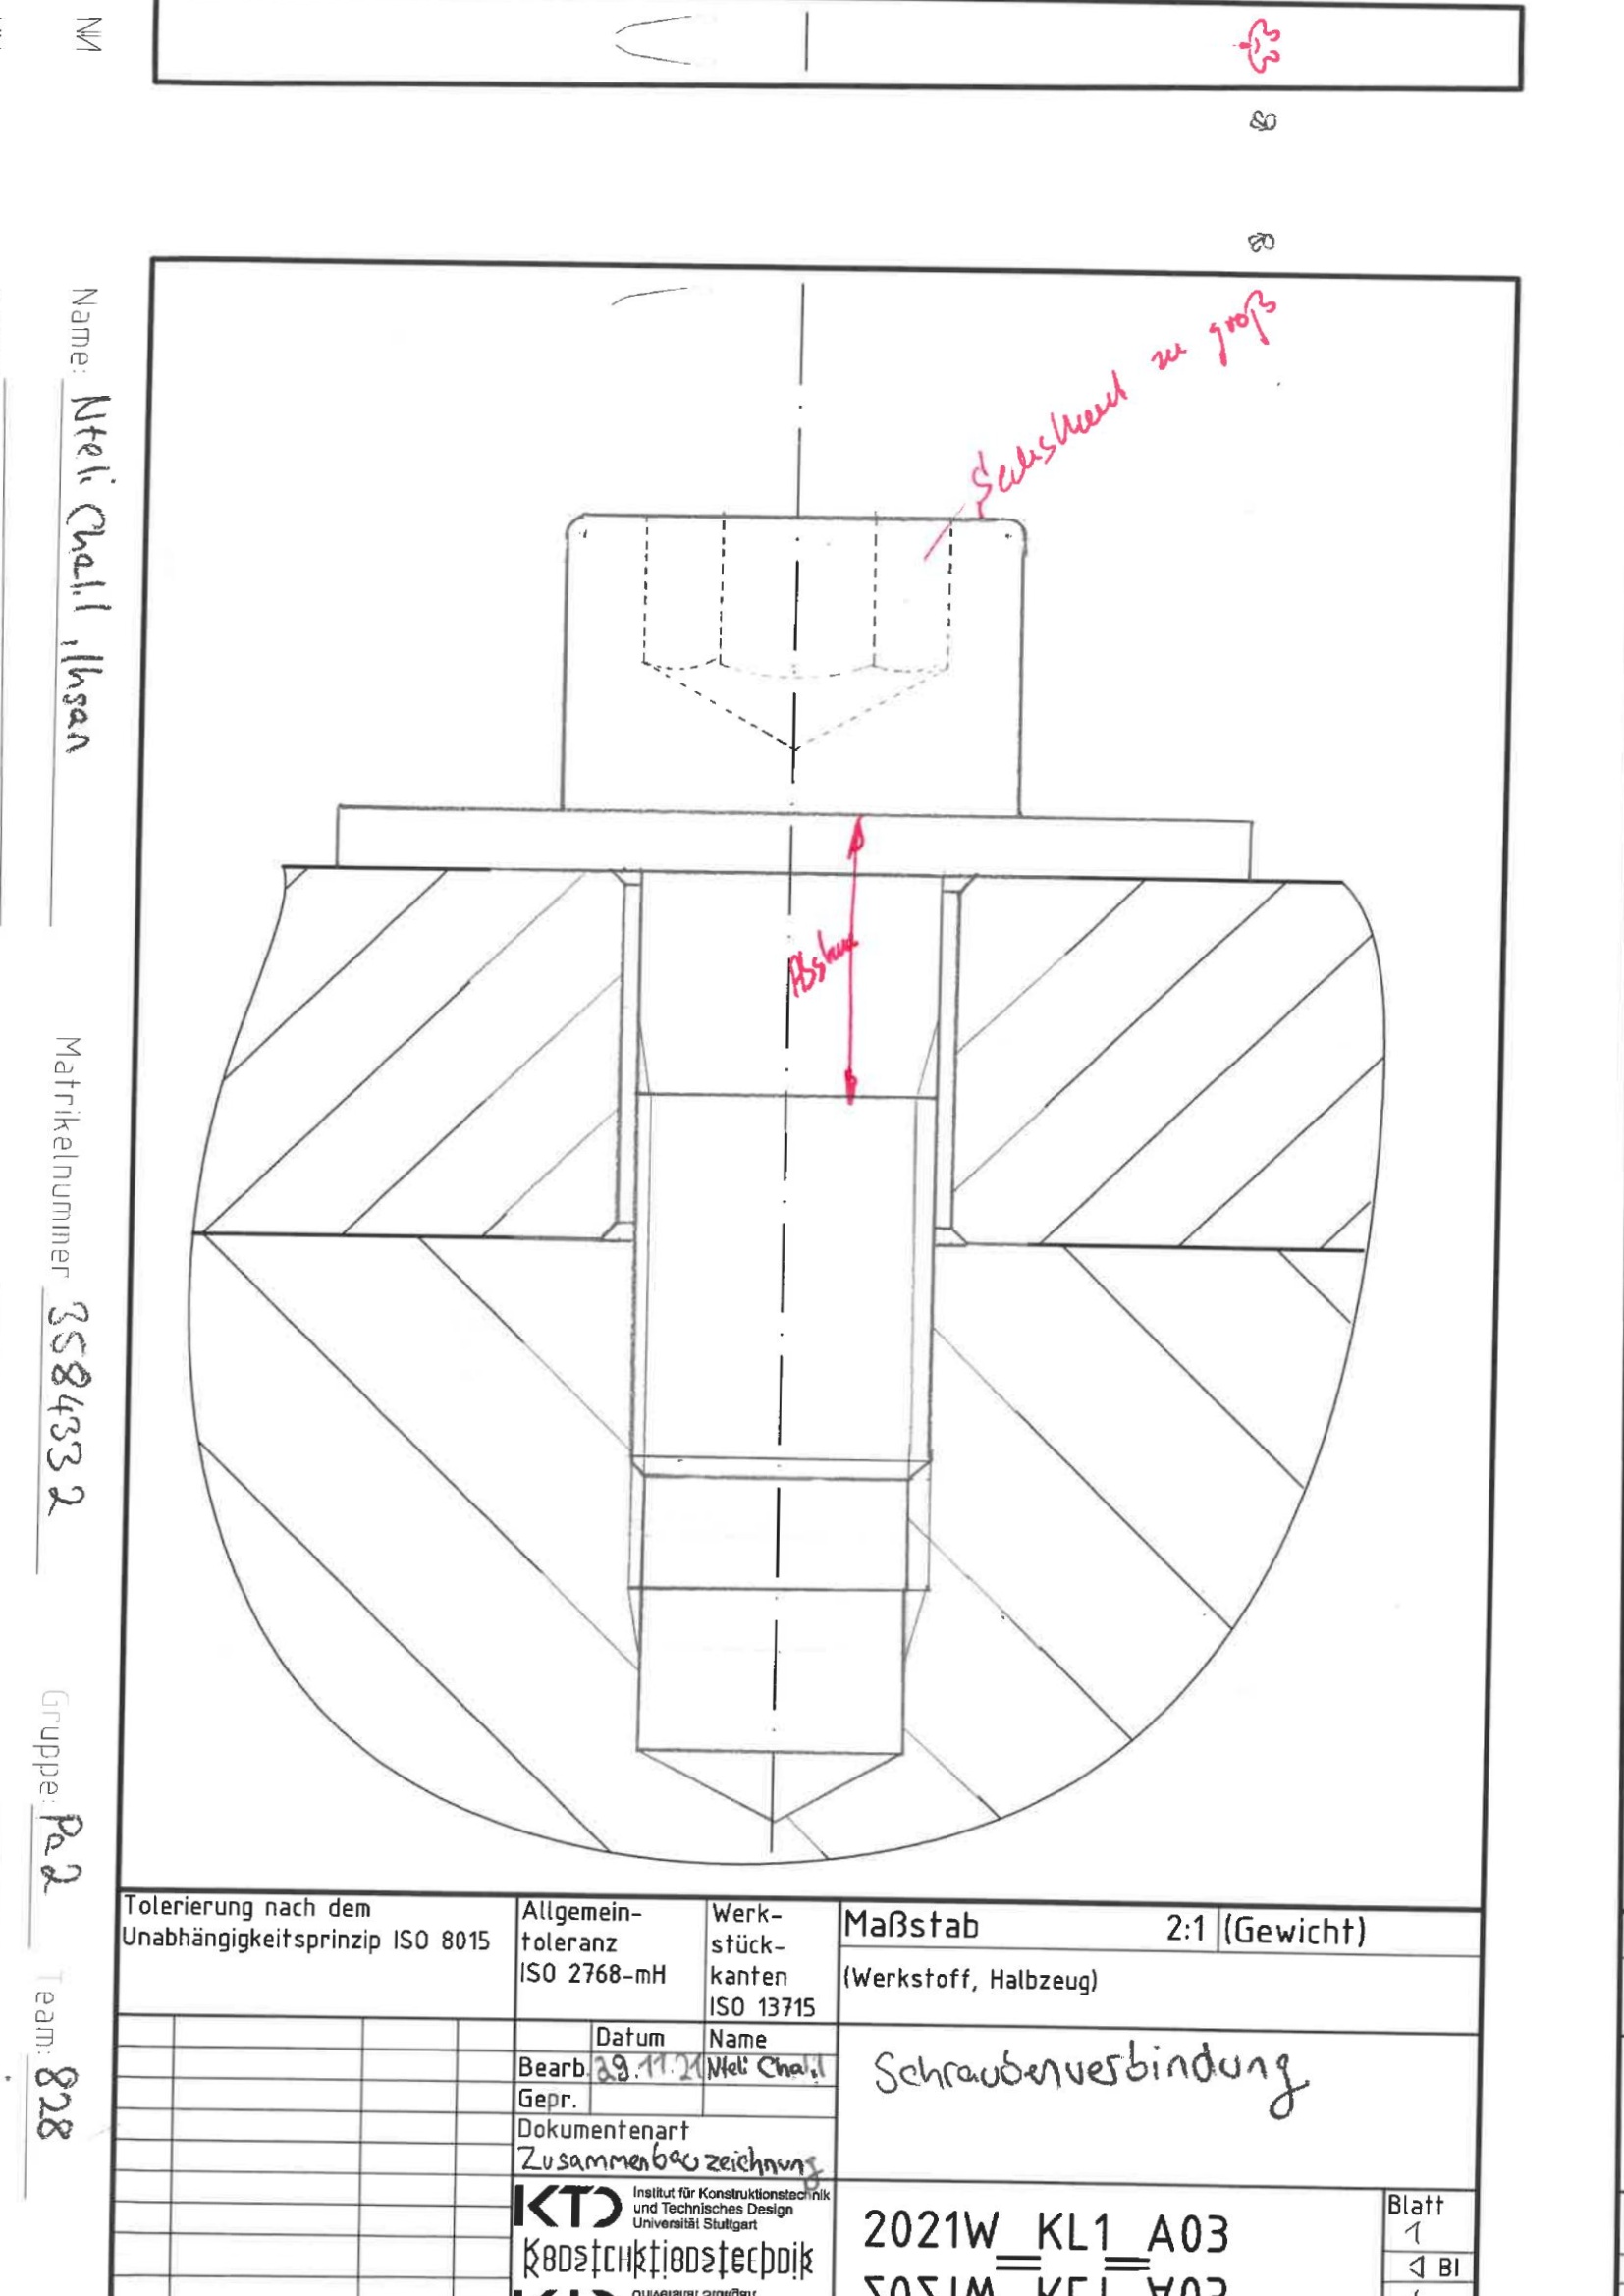 80
80
Sechskant zu groß
Name: Nteli Chalil, Ihsan
Matrikelnummer 3584332
Gruppe: Pa2
Team: 828
Tolerierung nach dem
Unabhängigkeitsprinzip ISO 8015
Allgemein-
toleranz
ISO 2768-mH
Werk-
stück-
kanten
ISO 13715
Maßstab 2:1 (Gewicht)
(Werkstoff, Halbzeug)
Datum Name
Bearb. 29.11.21 Nteli Chalil
Gepr.
Dokumentenart
Zusammenbauzeichnung
Schraubenverbindung
KTD Institut für Konstruktionstechnik
und Technisches Design
Universität Stuttgart
Konstruktionstechnik
2021W_KL1_A03
Blatt
1
Bl